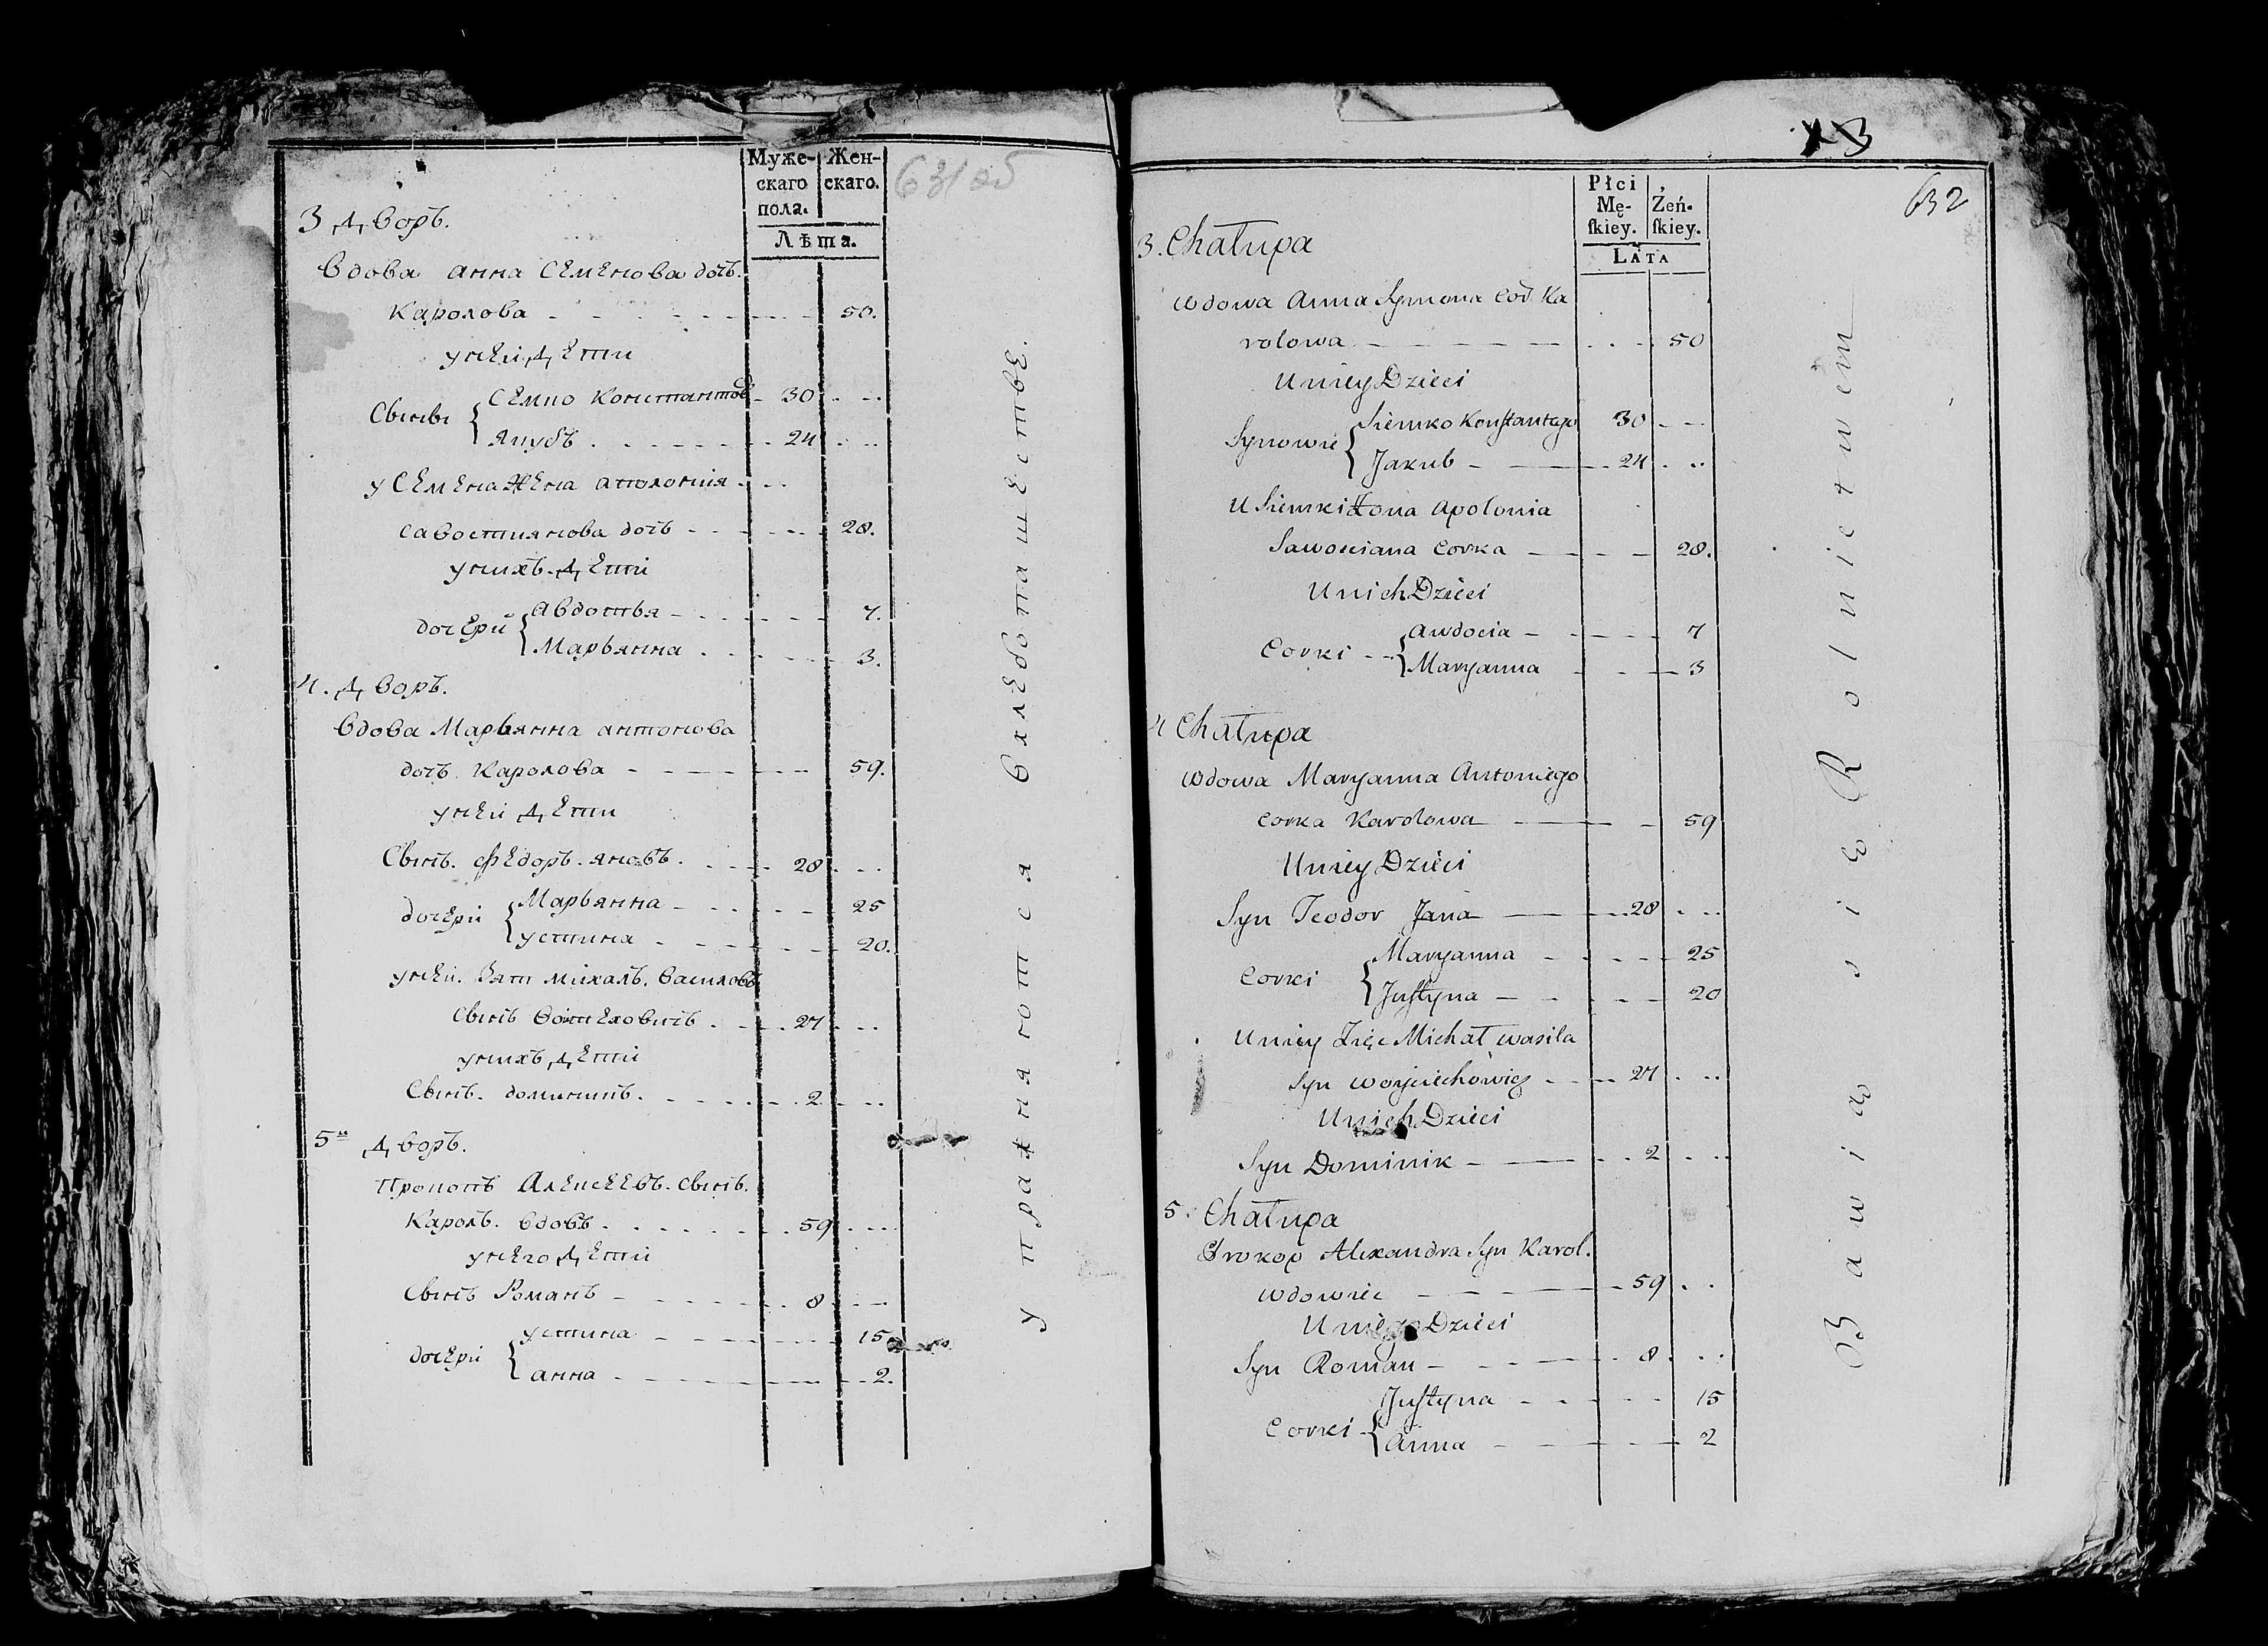 Муже-
скаго
пола.
Жен-
скаго.
Лѣта.
631 об
3 Дворъ.
Вдова анна Семенова дочь.
Каролова 50.
унеи Дети
Сыны
Семко Константов 30
Якубъ 24
у Семена Жена аполония
савостиянова дочь 28.
унихъ Дети
дочери
Авдотья 7.
Марьянна 3.
4. Дворъ.
Вдова Марьянна антонова
дочь Каролова 59.
унеи Дети
Сынъ. Федоръ. яновъ. 28
дочери
Марьянна 25
устина 20.
унеи. Зяти михалъ. Василовъ
Сынъ Войтеховичъ 27
унихъ Дети
Сынъ. доминикъ. 2
5й Дворъ.
Прокопъ Алексеевъ. Сынъ.
Кароль. вдовъ 59
унего Дети
Сынъ Романъ 8
дочери
устина 15
анна 2.
упражняются вхлебопашестве.
ХВ
632
Płci
Mę-
ſkiey.
Żeń-
ſkiey.
LATA
3. Chałupa
wdowa Anna Symona Cod Ka
rolowa 50
Uniey Dzieci
Synowie
Siemko Konſtantego 30
Jakub 24
U Siemki Żona Apolonia
Sawosciana Corka 28.
Unich Dzieci
Corki
Awdocia 7
Maryanna 3
4 Chałupa
wdowa Maryanna Antoniego
corka Karolowa 59
Uniey Dzieci
Syn Teodor Jana 28
Corki
Maryanna 25
Juſtyna 20
Uniey Zięc Michał wasila
Syn woyciechowicz 27
Unich Dzieci
Syn Dominik 2
5. Chałupa
Prokop Alexandra Syn Karol.
wdowiec 59
Uniego Dzieci
Syn Roman 8
Corki
Juſtyna 15
Anna 2
Bawią się Rolnictwem